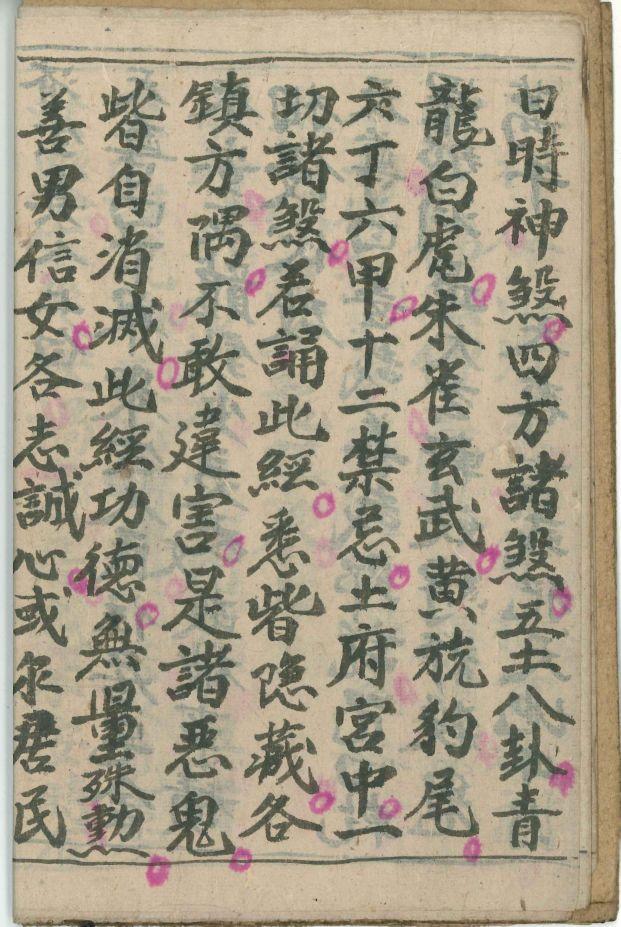 日時神煞四方諸煞五土八卦青
龍白虎朱雀玄武黄旐豹尾
六丁六甲十二禁忌土府宮中一
切諸煞若誦此經悉皆隐藏各
鎮方隅不敢違害是諸惡鬼
皆自消滅此經功德無量殊勲
善男信女各志誠心或釆居民